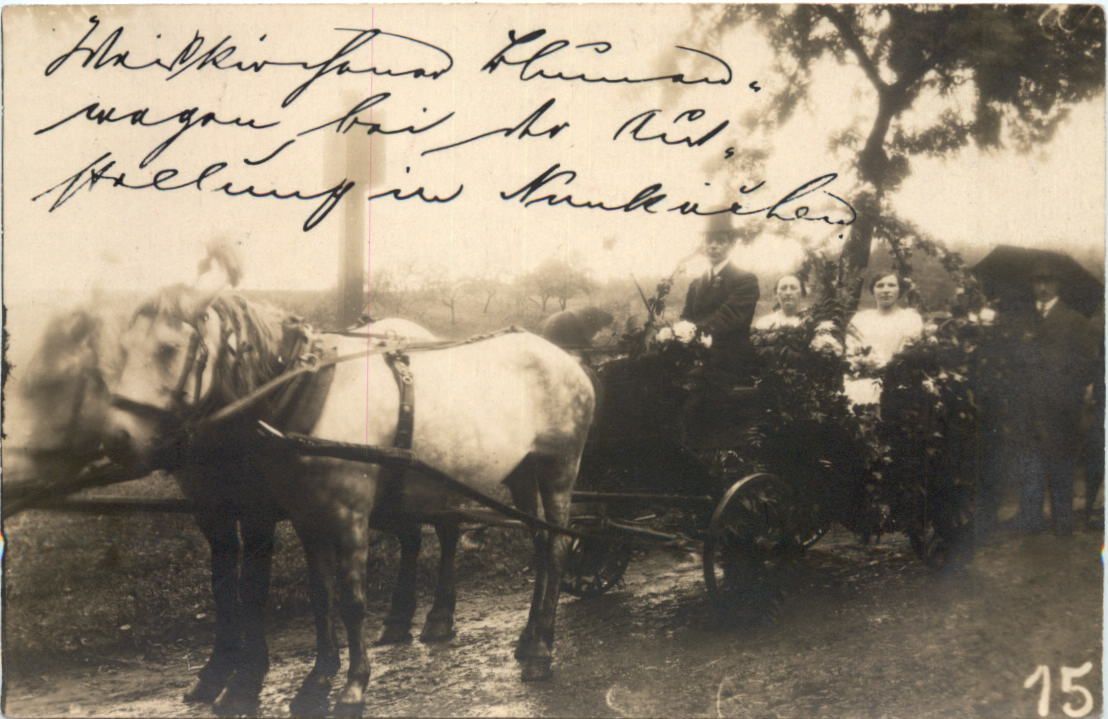 Weißkirchener Blumen„
wagen bei der Aus„
stellung in Neunkirchen.
15